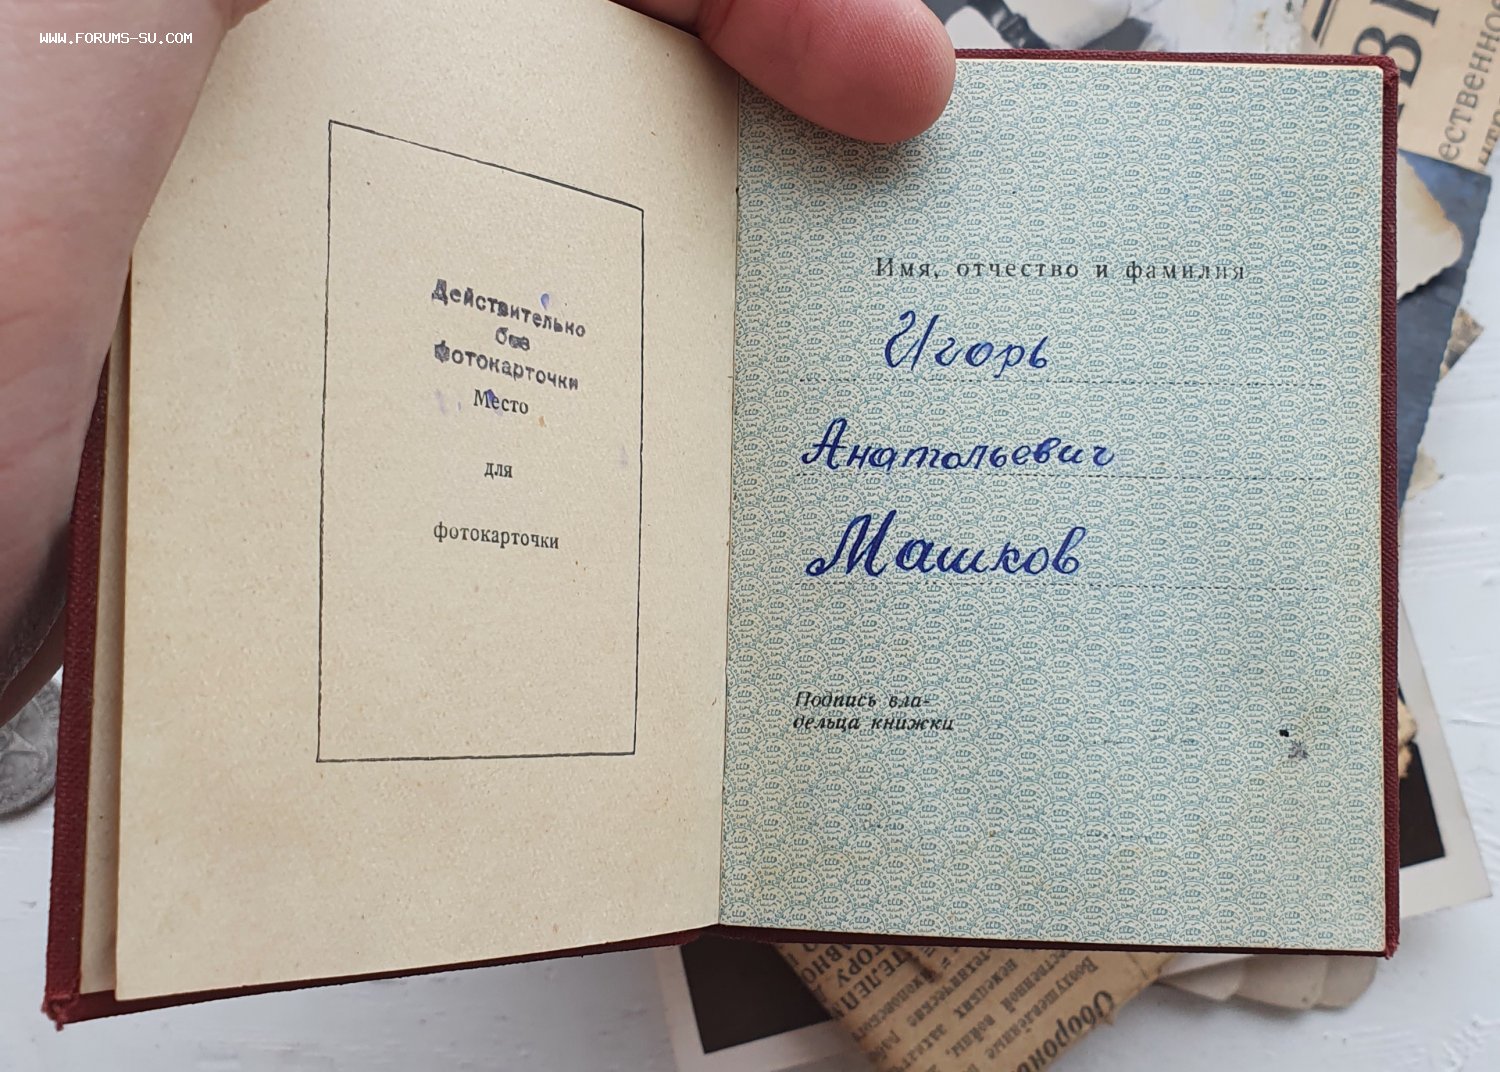 www.forums-su.com
Действительно
без
фотокарточки
Место
для
фотокарточки
Имя, отчество и фамилия
Игорь
Анатольевич
Машков
Подпись вла-
дельца книжки